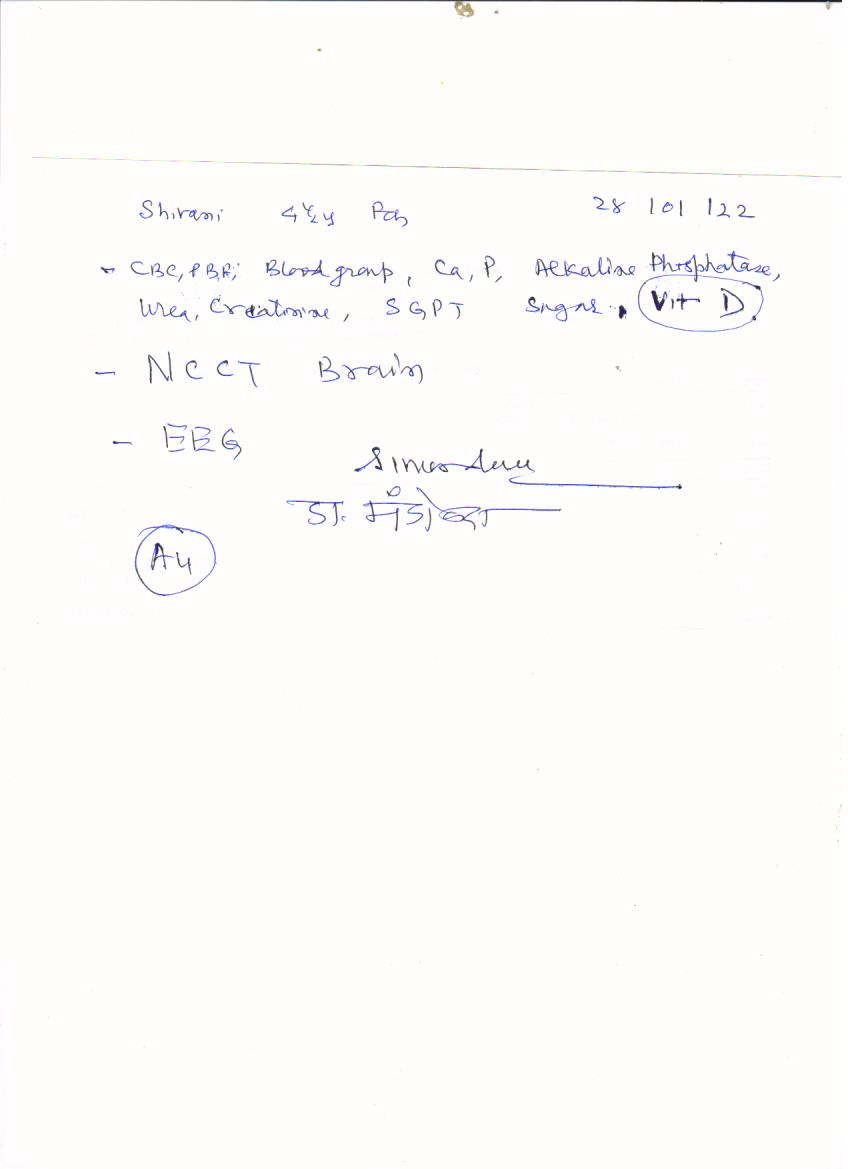 Shivani 4½y 28/01/22
CBC, PBF; Blood group, Ca, P, Alkaline Phosphatase,
Urea, Creatinine, SGPT Sugar, Vit D.
- NCCT Brain
- EEG
डा.
A4